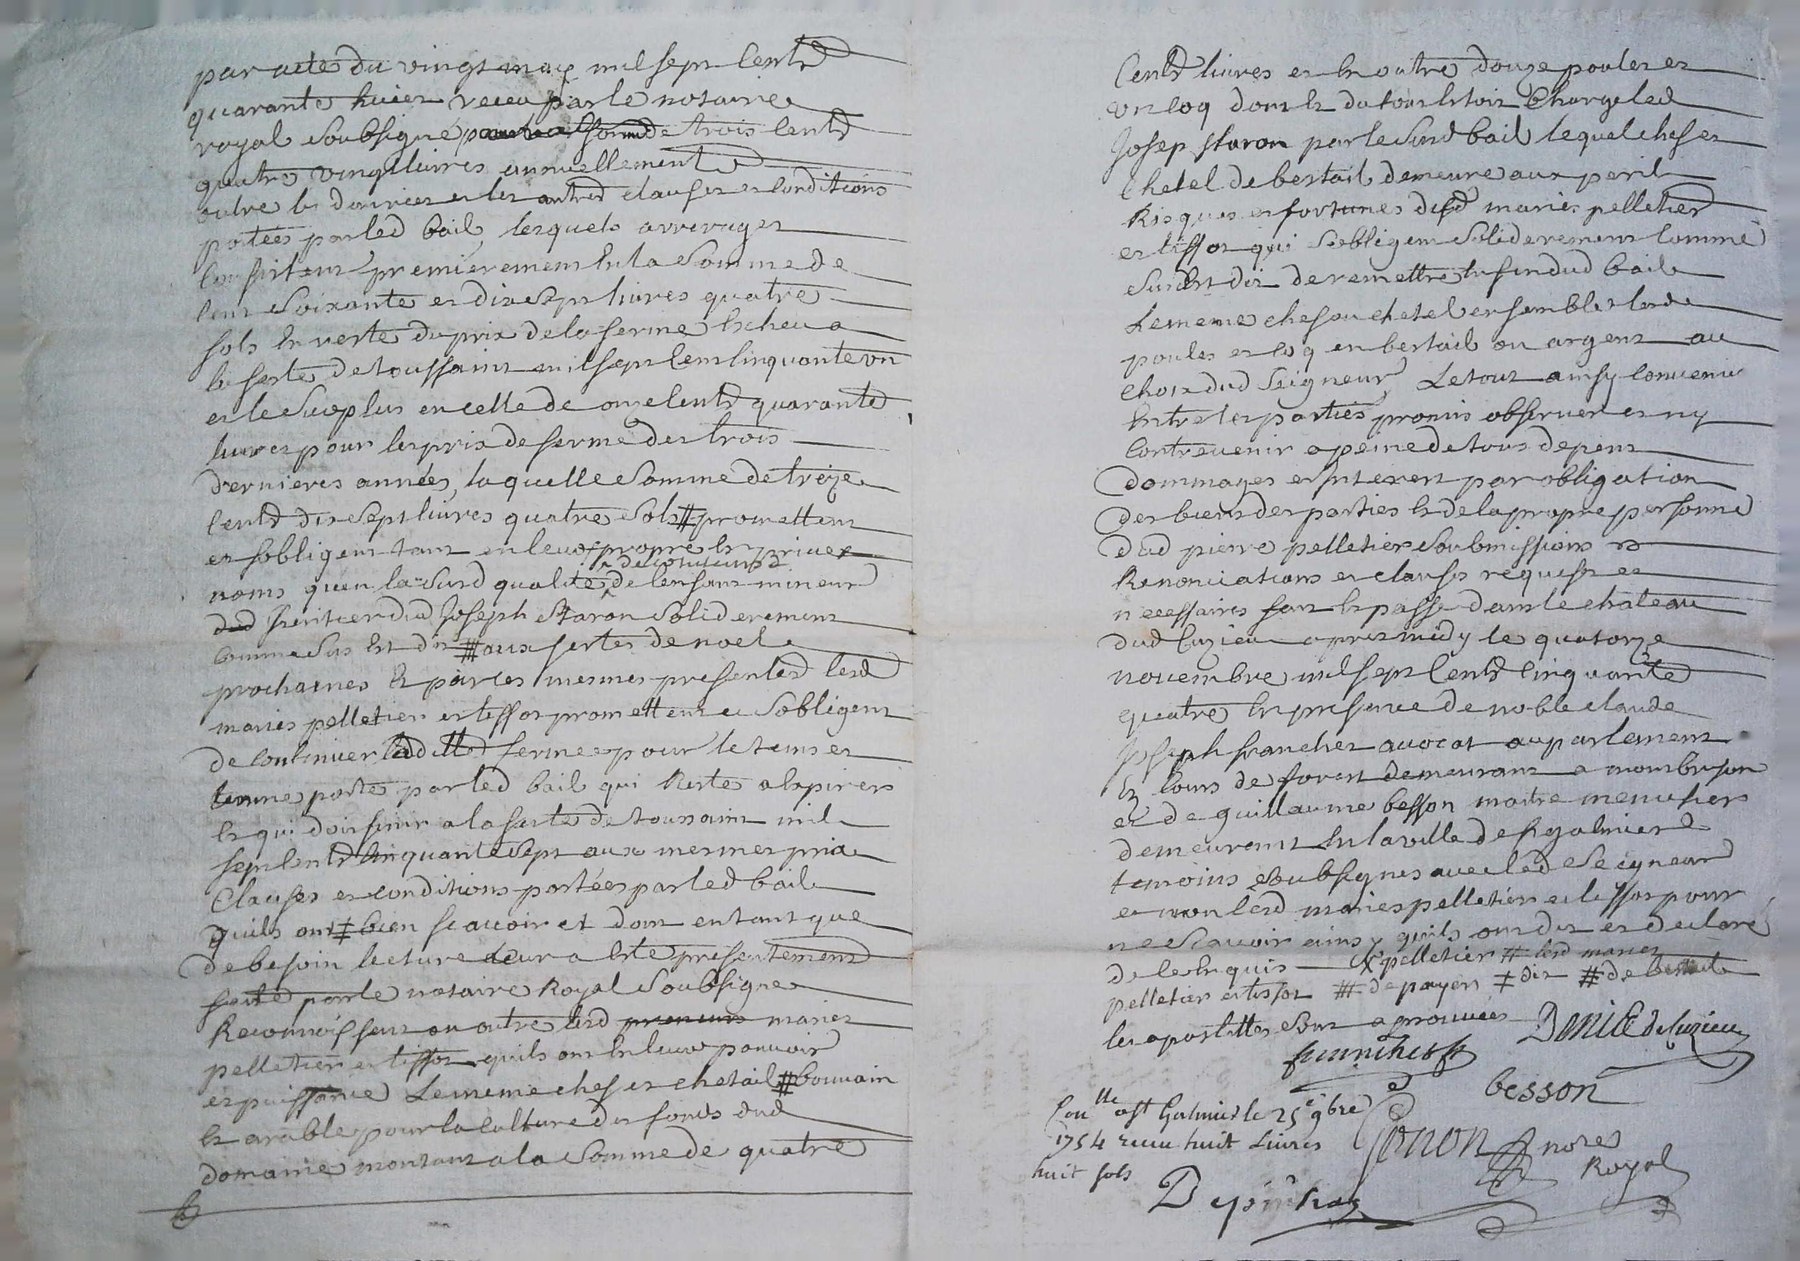 par acte du vingt may mil sept Centd
quarante huict receu par le notaire
royal soubsigné somme de trois Centd
quatre vingt livres annuellement
outre les danrées et les autres clauses et conditions
portées par led bail, lesquels arrerages
Consistent premierement En la somme de
Cent soixante et dix sept livres quatre
sols En reste du prix de la ferme Escheu a
la feste de toussaint mil sept Cent Cinquante un
et le surplus en celle de onze Centd quarante
livres pour les prix de ferme des trois
dernieres années, laquelle somme de treize
Centd dix sept livres quatre sols # promettent
et sobligent tant en leur propre Et privés
noms quen la susd qualité de lenfant mineur
dud heritier dud Joseph Staron soliderement
Comme sus Est dit ## aux festes de noel
prochaines Et par ces mesmes presentes lesd
mariés pelletier et tissot promettent et sobligent
de continuer ladite ferme pour le tems et
terme portés par led bail qui Reste a Expirer
Et qui doit finir a la feste de toussaint mil
sept Centd Cinquante sept aux mesmes prix
Clauses et conditions portées par led bail
quils ont ‡ bien scavoir et dont en tant que
de besoin lecture leur a Esté presentement
faite par le notaire Royal soubsigné
Reconnoissent en outre lesd preneurs mariés
pelletier et tissot quils ont En leur pouvoir
et puissance Le meme chef et chetail # bouvain
Et arable pour la culture des fonds dud
domaine montant a la somme de quatre
Centd livres et En outre douze poules et
un coq dont Et du tout Estoit Chargé led
Josep staron par le susd bail lequel chef et
Chetel de bestail demeure aux peril
Risques et fortunes desd mariés pelletier
et tissot qui sobligent soliderement Comme
sus Est dit de remettre En fin dud bail
Le meme chef ou chetel ensemble lesd
poules et coq en bestail ou argent au
Choix dud seigneur, Le tout ainsy convenu
Entre les parties promis observer et ny
Contrevenir a peine de tous depens
dommages et Interest par obligation
des biens des parties Et de la propre personne
dud pierre pelletier soubmissions
Renonciations et clauses requises et
necessaires fait Et passé dans le chateau
dud Cuzieu apres midy le quatorze
novembre mil sept Centd Cinquante
quatre En presence de noble claude
Joseph franchet avocat au parlement
Et Cours de forest demeurant a montbrison
et de guillaume besson maitre menusier
demeurant En la ville de St galmier
temoins soubsignés avec led seigneur
et non lesd mariés pelletier et tissot pour
ne scavoir ainsy quils ont dit et declaré
de ce Enquis pelletier # lesd mariés
pelletier et tissot ## de payer ‡ dit # de bestail
les apostilles sont aprouvées
franchet Denis de Cuzieu
besson
Conlle a St Galmier le 25e 9bre
1754 receu huit Livres
huit sols
Gonon nore
Royal
Depinhac